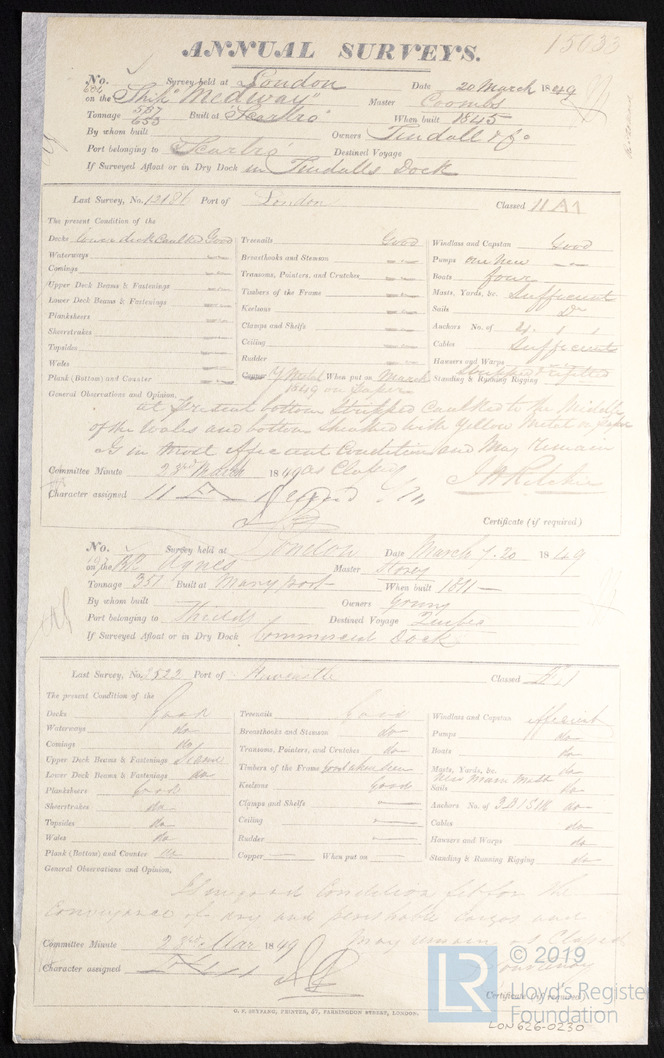 ANNUAL SURVEYS.
15033
No. 604 Survey held at London Date 20 March 1849
on the Ship "Medway" Master Coombs
Tonnage 587 653 Built at Scarbro' When built 1845
By whom built Owners Tindall & Co
Port belonging to Scarbro' Destined Voyage
If Surveyed Afloat or in Dry Dock in Tindalls Dock
Last Survey, No. 12181 Port of London Classed 11 A1
The present Condition of the
Decks lower deck Caulked Good
Waterways
Comings
Upper Deck Beams & Fastenings
Lower Deck Beams & Fastenings
Planksheers
Sheerstrakes
Topsides
Wales
Plank (Bottom) and Counter
Treenails Good
Breasthooks and Stemson
Transoms, Pointers, and Crutches
Timbers of the Frame
Keelsons
Clamps and Shelfs
Ceiling
Rudder
Copper Y Metal When put on March
1849 on
Windlass and Capstan Good
Pumps one New
Boats four
Masts, Yards, &c. Sufficient
Sails Do
Anchors No. of
Cables Sufficient
Hawsers and Warps
Standing & Running Rigging Stripped & refitted
General Observations and Opinion.
at present bottom Stripped Caulked to the Middle
of the Wales and bottom Sheathed with Yellow Metal on
is in most efficient Condition and May Remain
Committee Minute 23rd March 1849 as Classed
J H Ritchie
Character assigned 11
Certificate (if required)
No. Survey held at London Date March 7. 20 1849
on the Bk Agnes Master Storey
Tonnage 351 Built at Maryport When built 1811
By whom built Owners Young
Port belonging to Shields Destined Voyage Quebec
If Surveyed Afloat or in Dry Dock Commercial Dock
Last Survey, No. 3522 Port of Newcastle Classed
The present Condition of the
Decks Good
Waterways do
Comings do
Upper Deck Beams & Fastenings
Lower Deck Beams & Fastenings do
Planksheers Good
Sheerstrakes do
Topsides do
Wales do
Plank (Bottom) and Counter do
Treenails Good
Breasthooks and Stemson do
Transoms, Pointers, and Crutches do
Timbers of the Frame
Keelsons Good
Clamps and Shelfs
Ceiling
Rudder
Copper When put on
Windlass and Capstan efficient
Pumps do
Boats do
Masts, Yards, &c. do
New Main Mast
Sails do
Anchors No. of do
Cables do
Hawsers and Warps do
Standing & Running Rigging do
General Observations and Opinion,
Is in good Condition fit for the
Conveyance of dry and perishable Cargos and
Committee Minute 23rd Mar 1849 May remain as Classed
Character assigned
Courtenay
Certificate (if required)
G. F. SEYFANG, PRINTER, 57, FARRINGDON STREET, LONDON.
LR © 2019
Lloyd's Register
Foundation
LON626-0230